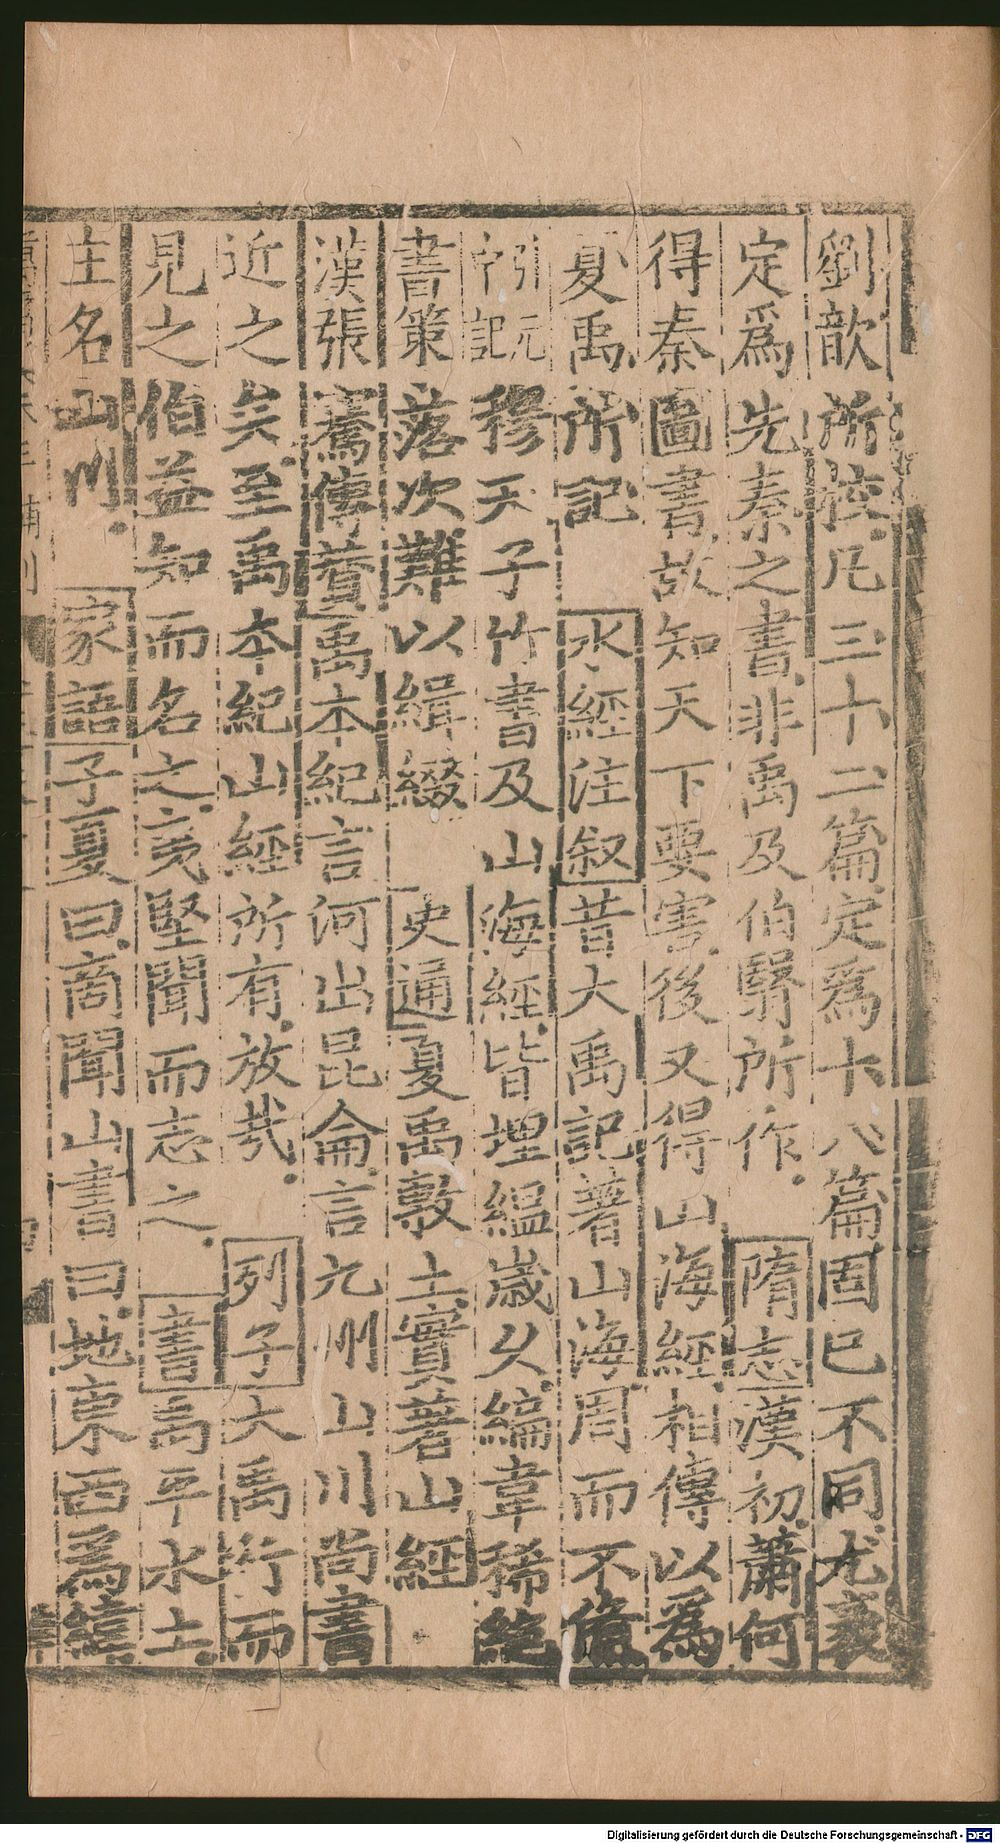 劉歆所校凡三十二篇定爲十八篇固已不同尤袤
定爲先秦之書非禹及伯翳所作隋志漢初蕭何
得秦圖書故知天下要害後又得山海經相傳以爲
夏禹所記 水經注叙昔大禹記著山海周而不備
引元中記穆天子竹書及山海經皆埋緼歲久編韋稀絶
書策落次難以緝綴 史通夏禹敷土實著山經
漢張騫傳贊禹本紀言河出昆侖言九州山川尚書
近之矣至禹本紀山經所有放哉 列子大禹行而
見之伯益知而名之夷堅聞而志之 書禹平水土
主名山川 家語子夏曰商聞山書曰地東西爲緯
Digitalisierung gefördert durch die Deutsche Forschungsgemeinschaft - DFG